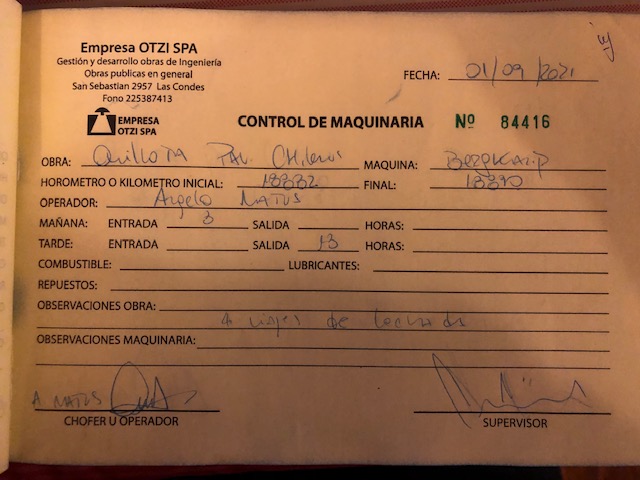 Empresa OTZI SPA
Gestión y desarrollo obras de Ingeniería
Obras publicas en general
San Sebastian 2957 Las Condes
Fono 225387413
FECHA: 01/09/2021
EMPRESA
OTZI SPA
CONTROL DE MAQUINARIA Nº 84416
OBRA: Quillota Pav. Chilenos MAQUINA:
HOROMETRO O KILOMETRO INICIAL: FINAL:
OPERADOR: Angelo MATUS
MAÑANA: ENTRADA 8 SALIDA HORAS:
TARDE: ENTRADA SALIDA 13 HORAS:
COMBUSTIBLE: LUBRICANTES:
REPUESTOS:
OBSERVACIONES OBRA: viajes de
OBSERVACIONES MAQUINARIA:
A MATUS
CHOFER U OPERADOR SUPERVISOR